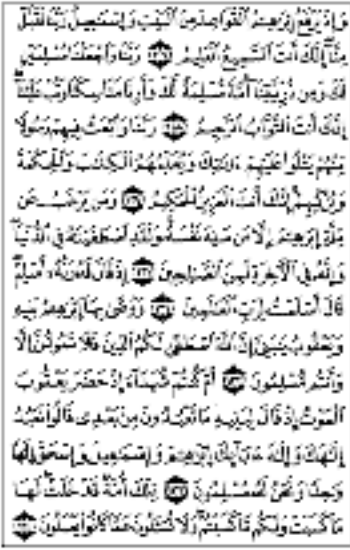 وَإِذْ يَرْفَعُ إِبْرَٰهِـۧمُ ٱلْقَوَاعِدَ مِنَ ٱلْبَيْتِ وَإِسْمَـٰعِيلُ رَبَّنَا تَقَبَّلْ
مِنَّآ إِنَّكَ أَنتَ ٱلسَّمِيعُ ٱلْعَلِيمُ ١٢٧ رَبَّنَا وَٱجْعَلْنَا مُسْلِمَيْنِ
لَكَ وَمِن ذُرِّيَّتِنَآ أُمَّةً مُّسْلِمَةً لَّكَ وَأَرِنَا مَنَاسِكَنَا وَتُبْ عَلَيْنَآ
إِنَّكَ أَنتَ ٱلتَّوَّابُ ٱلرَّحِيمُ ١٢٨ رَبَّنَا وَٱبْعَثْ فِيهِمْ رَسُولًا
مِّنْهُمْ يَتْلُوا۟ عَلَيْهِمْ ءَايَـٰتِكَ وَيُعَلِّمُهُمُ ٱلْكِتَـٰبَ وَٱلْحِكْمَةَ
وَيُزَكِّيهِمْ إِنَّكَ أَنتَ ٱلْعَزِيزُ ٱلْحَكِيمُ ١٢٩ وَمَن يَرْغَبُ عَن
مِّلَّةِ إِبْرَٰهِـۧمَ إِلَّا مَن سَفِهَ نَفْسَهُۥ وَلَقَدِ ٱصْطَفَيْنَـٰهُ فِى ٱلدُّنْيَا
وَإِنَّهُۥ فِى ٱلْـَٔاخِرَةِ لَمِنَ ٱلصَّـٰلِحِينَ ١٣٠ إِذْ قَالَ لَهُۥ رَبُّهُۥٓ أَسْلِمْ
قَالَ أَسْلَمْتُ لِرَبِّ ٱلْعَـٰلَمِينَ ١٣١ وَوَصَّىٰ بِهَآ إِبْرَٰهِـۧمُ بَنِيهِ
وَيَعْقُوبُ يَـٰبَنِىَّ إِنَّ ٱللَّهَ ٱصْطَفَىٰ لَكُمُ ٱلدِّينَ فَلَا تَمُوتُنَّ إِلَّا
وَأَنتُم مُّسْلِمُونَ ١٣٢ أَمْ كُنتُمْ شُهَدَآءَ إِذْ حَضَرَ يَعْقُوبَ
ٱلْمَوْتُ إِذْ قَالَ لِبَنِيهِ مَا تَعْبُدُونَ مِنۢ بَعْدِى قَالُوا۟ نَعْبُدُ
إِلَـٰهَكَ وَإِلَـٰهَ ءَابَآئِكَ إِبْرَٰهِـۧمَ وَإِسْمَـٰعِيلَ وَإِسْحَـٰقَ إِلَـٰهًا
وَٰحِدًا وَنَحْنُ لَهُۥ مُسْلِمُونَ ١٣٣ تِلْكَ أُمَّةٌ قَدْ خَلَتْ لَهَا
مَا كَسَبَتْ وَلَكُم مَّا كَسَبْتُمْ وَلَا تُسْـَٔلُونَ عَمَّا كَانُوا۟ يَعْمَلُونَ ١٣٤